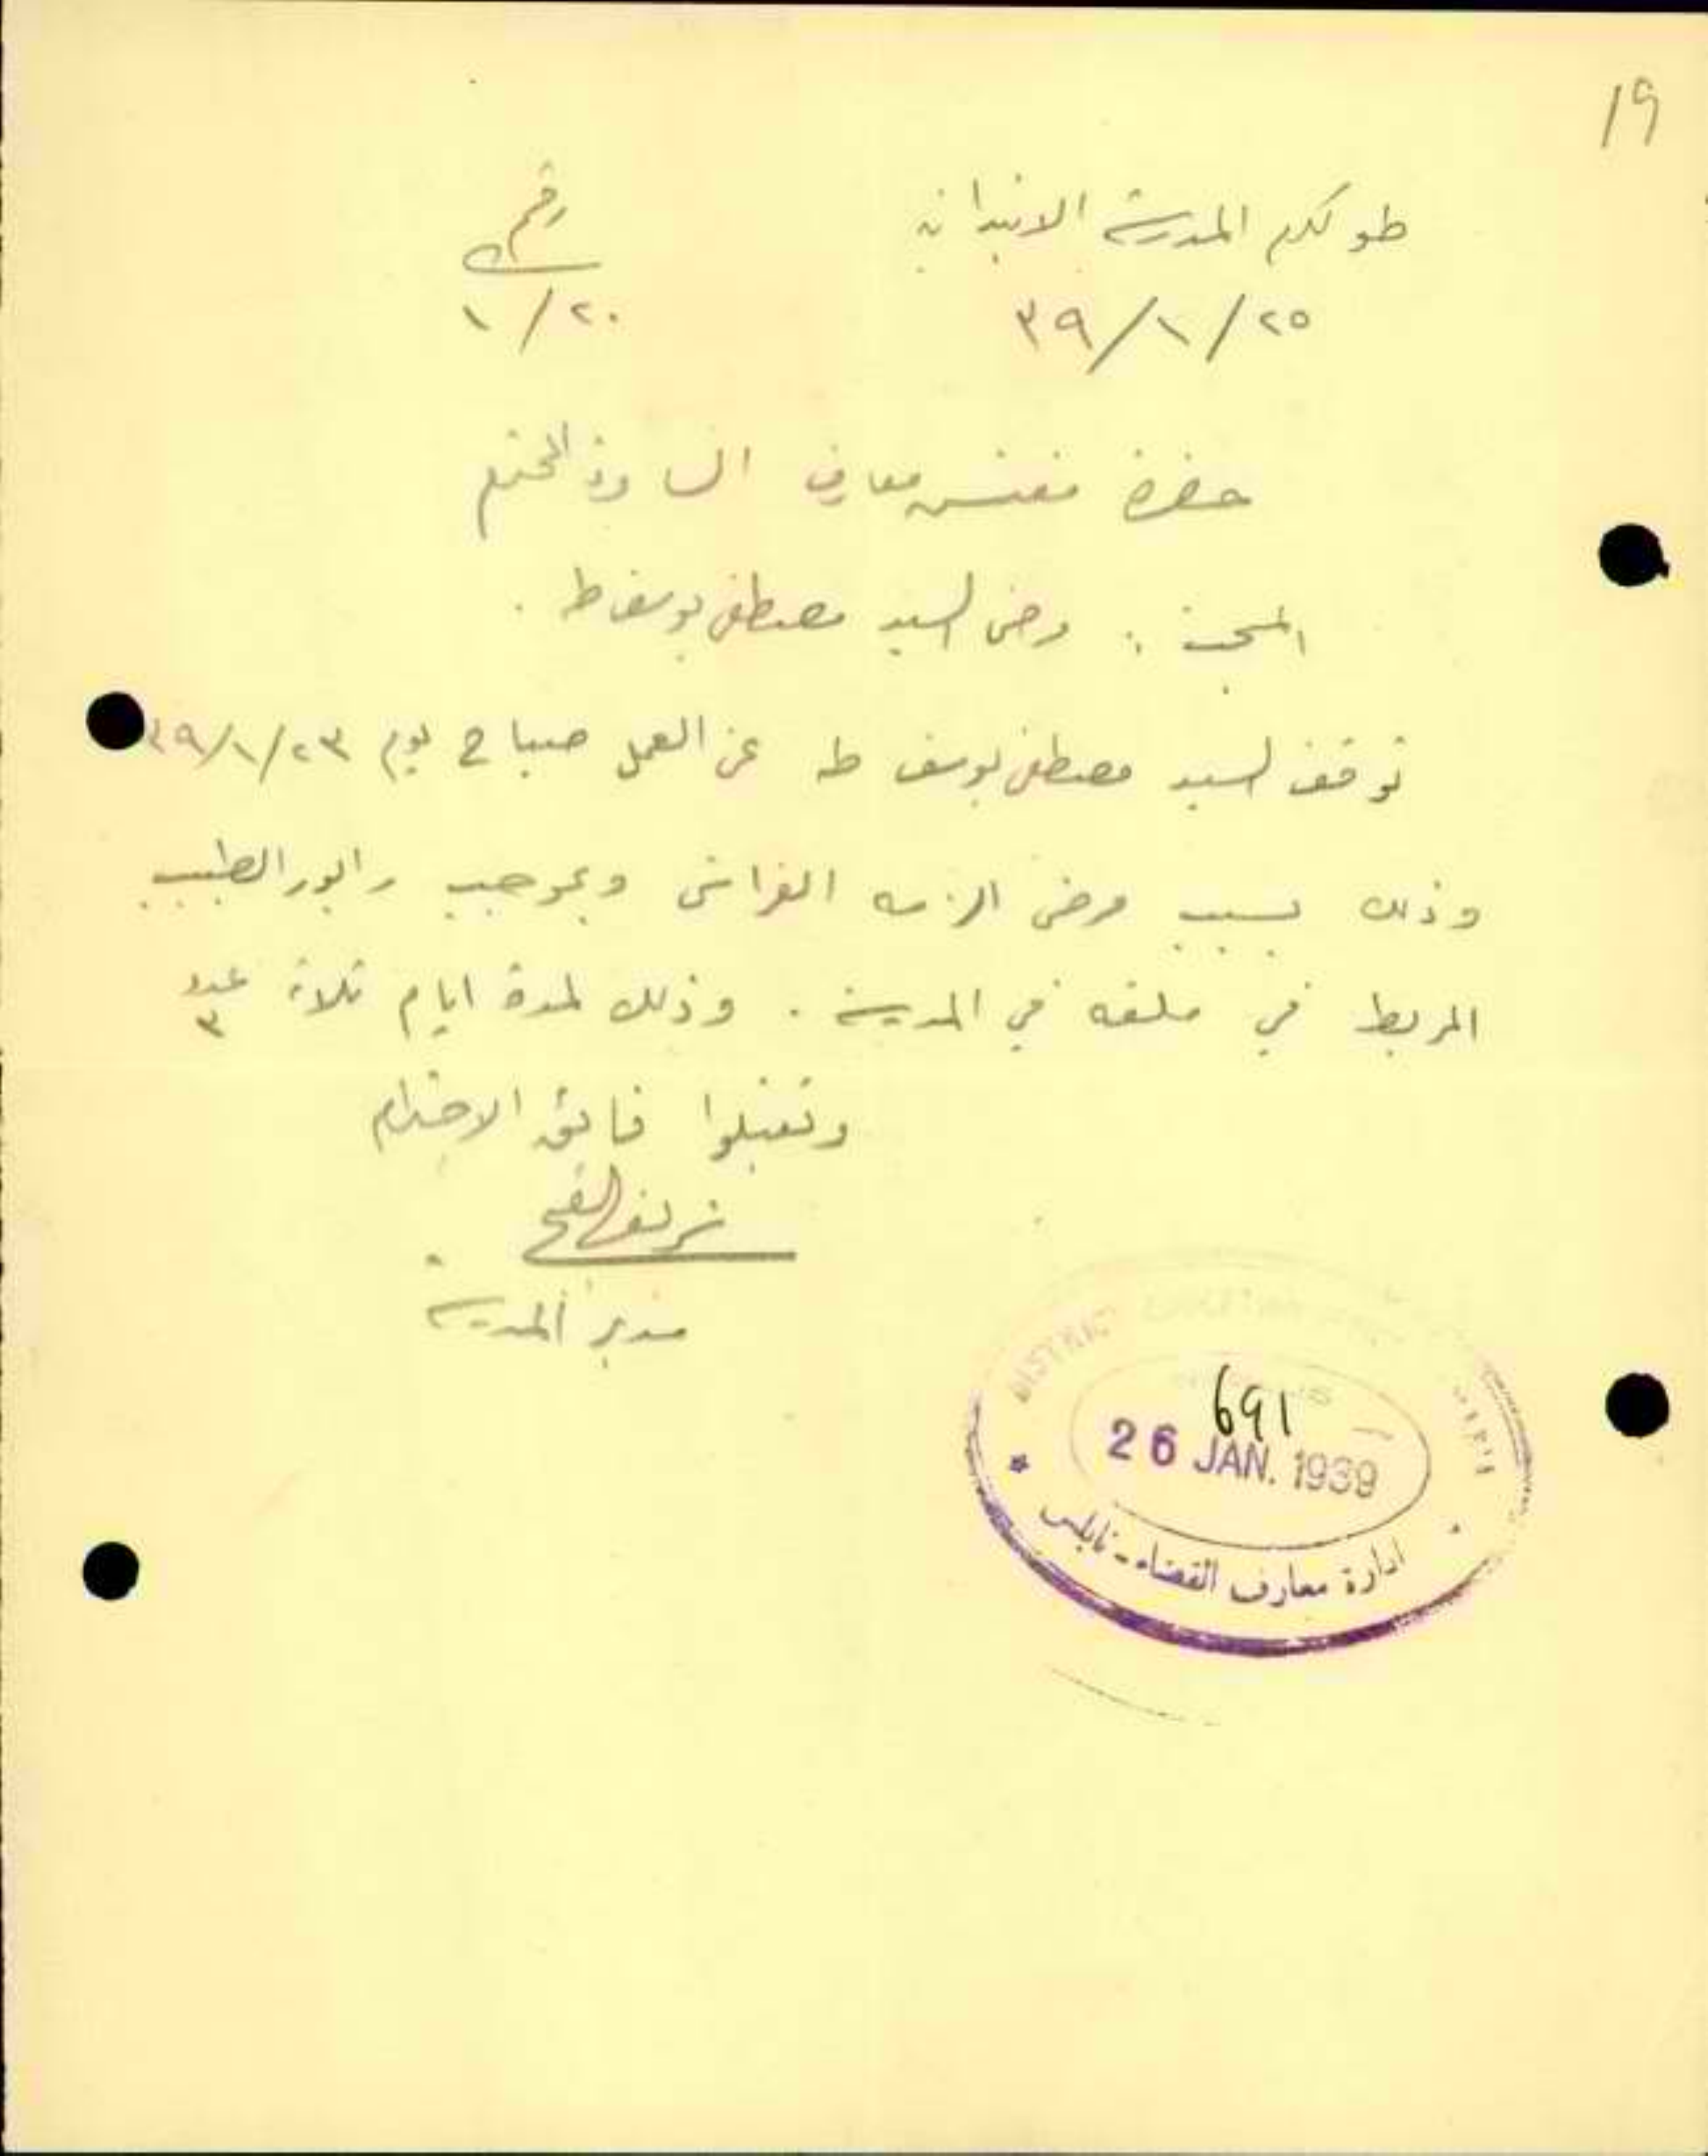 19
طولكرم المدرسة الابتدائية
رقم
٣٩/١/٢٥
١/٢٠
حضرة مفتش معارف السامرة المحترم
المبحث : مرض السيد مصطفى يوسف طه .
توقف السيد مصطفى يوسف طه عن العمل صباح يوم ٣٩/١/٢٣
وذلك بسبب مرض الزمه الفراش وبموجب رابور الطبيب
المربط في ملفه في المدرسة . وذلك لمدة ايام ثلاثة عدد ٣
وتفضلوا فائق الاحترام
مدير المدرسة
DISTRICT
691
26 JAN. 1939
ادارة معارف القضاء - نابلس